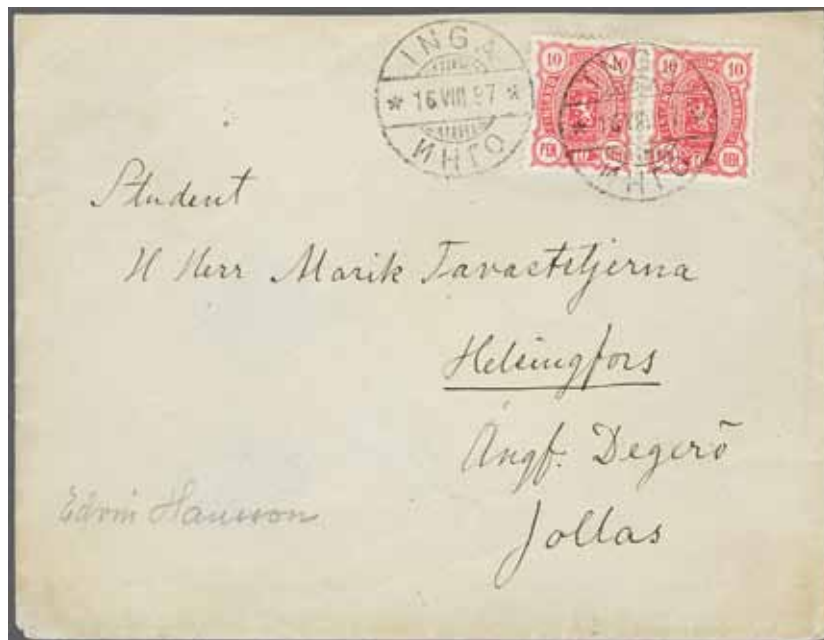 INGA
* 16 VIII 97 *
ИНГО
10 10
10 10
PEN.
PEN.
Student
H Herr Marik Tavaststjerna
Helsingfors
Ångf. Degerö
Jollas
Edvin Hansson